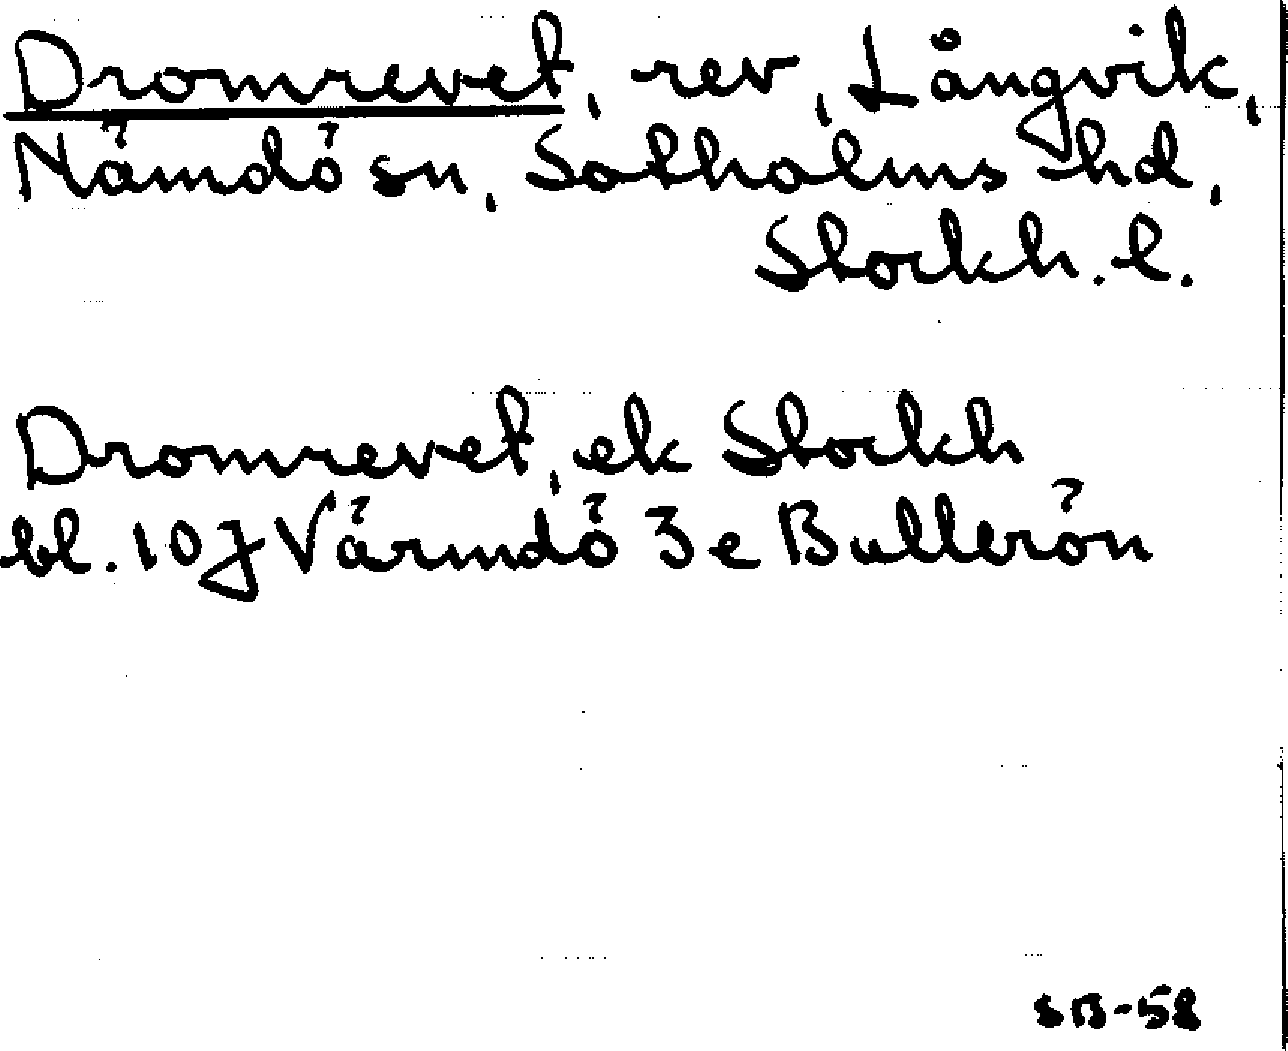 Dromrevet, rev, Långvik,
Nämdö sn, Sotholms hd,
Stockh. l.
Dromrevet, ek Stockh
bl. 10J Värmdö 3e Bullerön
SB-58